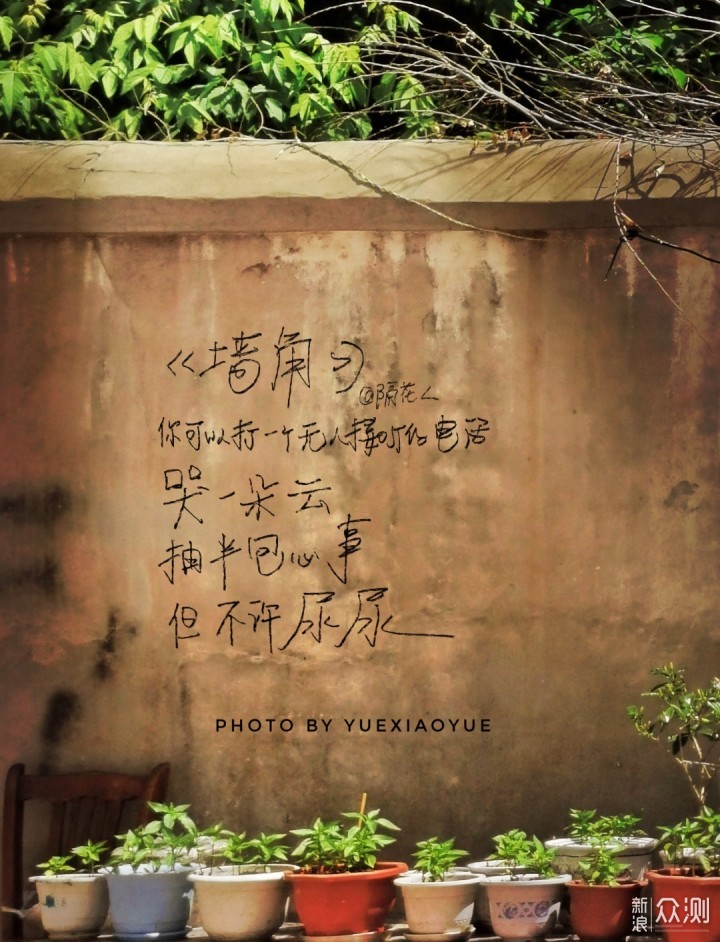 《墙角》
@隔花人
你可以打一个无人接听的电话
哭一朵云
抽半包心事
但不许尿尿
PHOTO BY YUEXIAOYUE
新浪众测